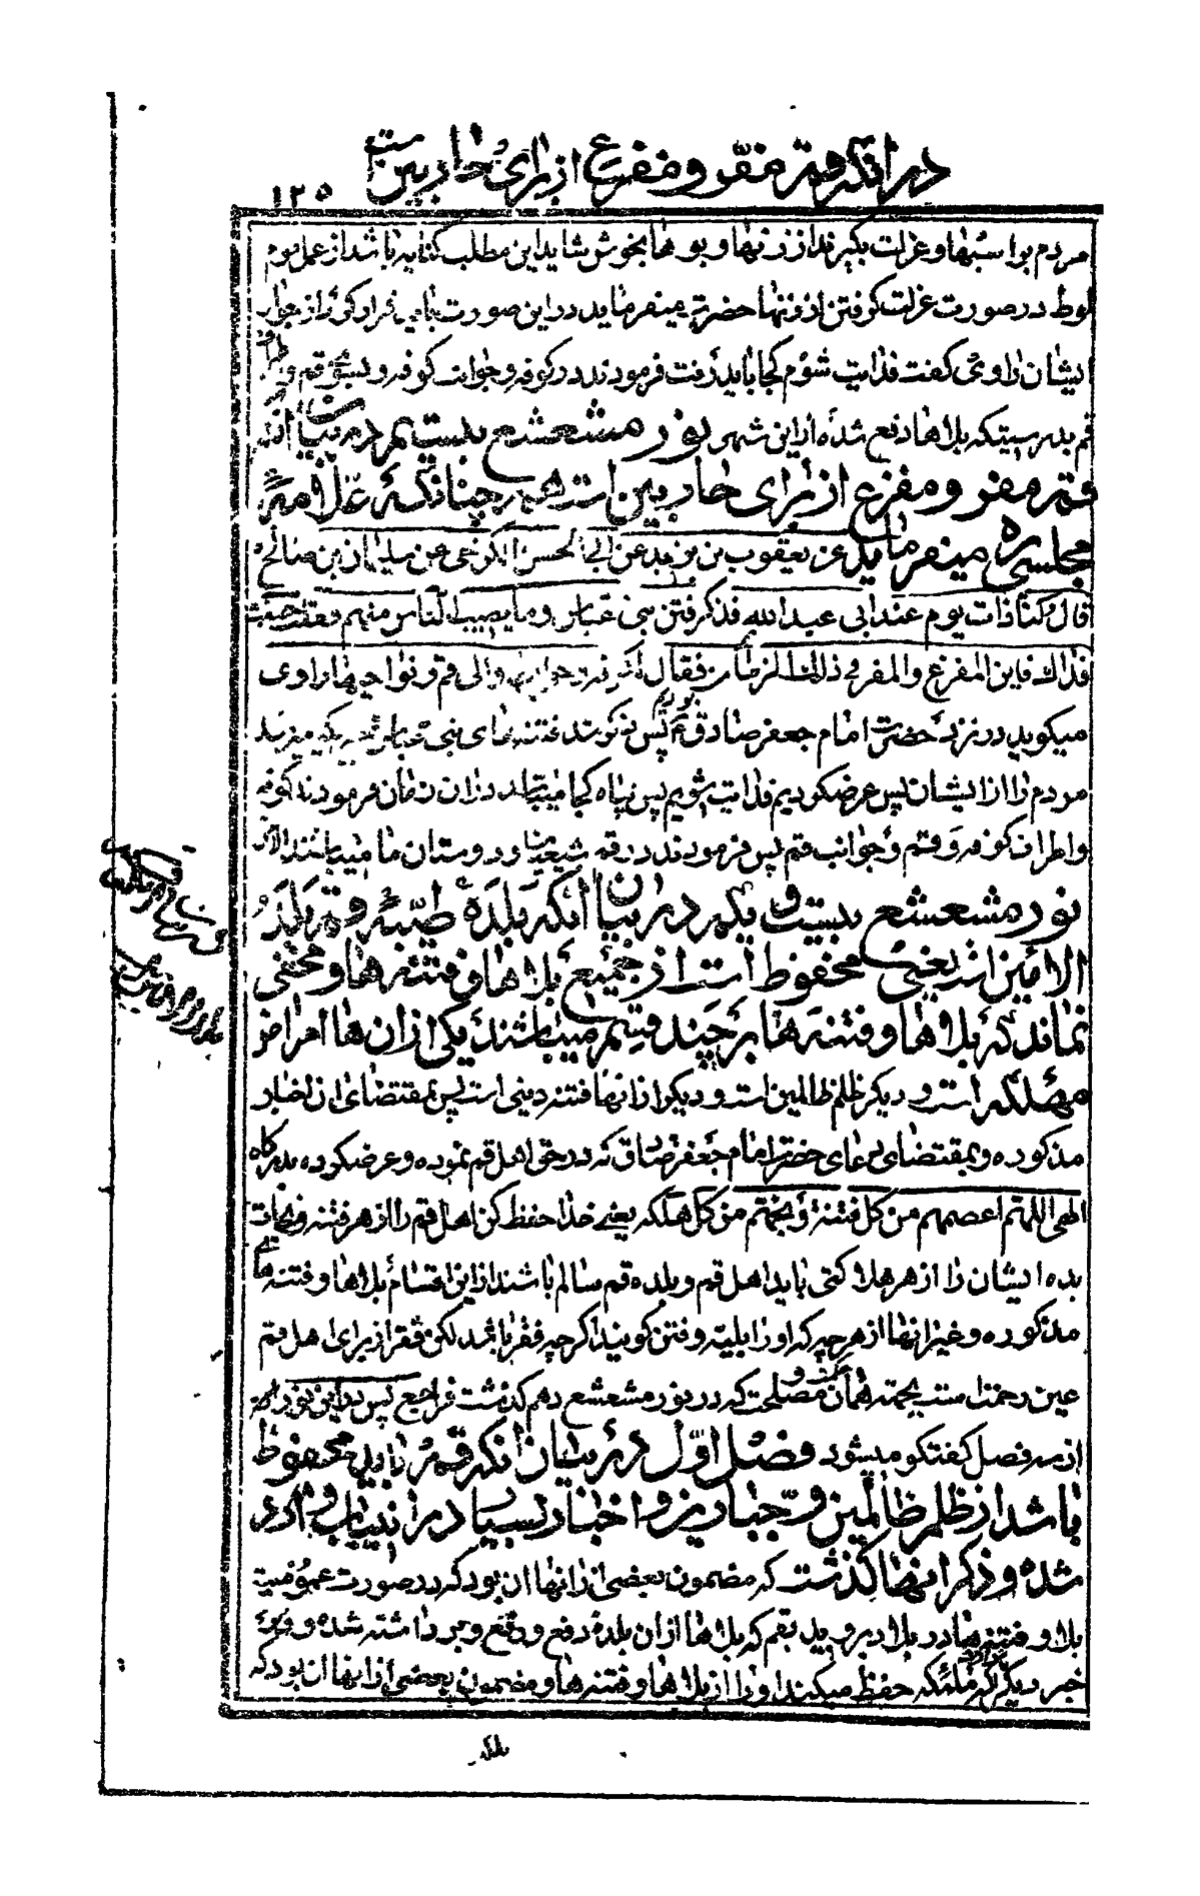 در آنکه قم مقر و مفزع از برای هاربین است
۱۲۵
مردم بواسبها و عزلت بگیرند از زنها و بوها بخوش شاید این مطلب کنایه باشد از عمل قوم
لوط در صورت عزلت گرفتن از زنها حضرت میفرماید در این صورت باید فرار کرد از جوار
ایشان راوی گفت فدایت شوم کجا باید رفت فرمودند در کوفه و جوانب کوفه و بسوی قم و
قم بدرستیکه بلاها دفع شده از این شهر نور مشعشع بیستم در بیان آنکه
قم مفر و مفزع از برای هاربین است همچنانکه علامه
مجلسی ره میفرماید عن یعقوب بن یزید عن ابی الحسن الکرخی عن سلیمان بن صالح
قال کنا ذات یوم عند ابی عبد الله فذکر فتن بنی عباس و ما یصیب الناس منهم فقلنا جعلت
فداك فاین المفزع والمفر فی ذلك الزمان فقال الی الکوفه و حوالیها والی قم و نواحیها راوی
میگوید در نزد حضرت امام جعفر صادق ع بودیم پس ذکر کردند فتنه های بنی عباس و آنچه که میرسد
مردم را از ایشان پس عرض کردیم فدایت شویم پس پناه کجا میباشد در ان زمان فرمودند کوفه
و اطراف کوفه و قم و جوانب قم پس فرمودند در قم شیعیان ما و دوستان ما میباشند الخ
نور مشعشع بیست و یکم در بیان آنکه بلده طیبه قم بلد
الامین است یعنی محفوظ است از جمیع بلاها و فتنه ها و مخفی
نماند که بلاها و فتنه ها بر چند قسم میباشند یکی از ان ها امراض
مهلکه است و دیگر ظلم ظالمین است و دیگر از انها فتنه دینی است پس بمقتضای ان اخبار
مذکوره و بمقتضای دعای حضرت امام جعفر صادق که در حق اهل قم نموده و عرض کرده بدرگاه
الهی اللهم اعصمهم من کل فتنة و نجهم من کل هلکه یعنی خدایا حفظ کن اهل قم را از هر فتنه و نجات
بده ایشان را از هر هلاکتی باید اهل قم و بلده قم سالم باشند از این اقسام بلاها و فتنه های
مذکوره و غیر انها از هر چیز که او را بلیه و فتن گویند اگر چه فقر باشد لکن فقر از برای اهل قم
عین رحمت است بجهة همان حکمت و مصلحت که در نور مشعشع دهم گذشت فراجع پس در این نور
از سه فصل گفتگو میشود فصل اول در بیان آنکه قم باید محفوظ
باشد از ظلم ظالمین و جبارین و اخبار بسیار در این باب وارد
شده و ذکر انها گذشت که مضمون بعضی از انها ان بود که در صورت عمومیت
بلا و فتنه ها در بلاد بروید بقم که بلاها از ان بلده دفع و رفع و برداشته شده و در
خبر دیگر که ملئکه حفظ میکنند او را از بلاها و فتنه ها و مضمون بعضی از انها ان بود که